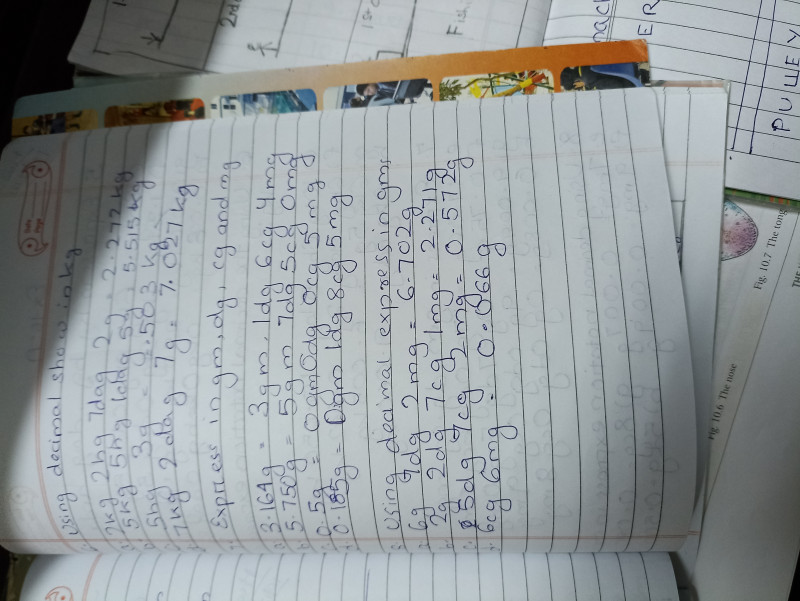 Using decimal show in kg
2kg 2hg 7dag 2g = 2.272kg
5kg 5hg 1dag 5g = 5.515kg
5hg 3g = 0.503 kg
7kg 2dag 7g = 7.027kg
Express in gm, dg, cg and mg
3.164g = 3gm 1dg 6cg 4mg
5.750g = 5gm 7dg 5cg 0mg
0.5g = 0gm 0dg 0cg 5mg
0.185g = 0gm 1dg 8cg 5mg
Using decimal express in gms
6g 7dg 2mg = 6.702g
2g 2dg 7cg 1mg = 2.271g
5dg 7cg 2mg = 0.572g
6cg 6mg = 0.066g
Fig. 10.6 The nose
Fig. 10.7 The tong
PULLEY
ER
Fish
2nd